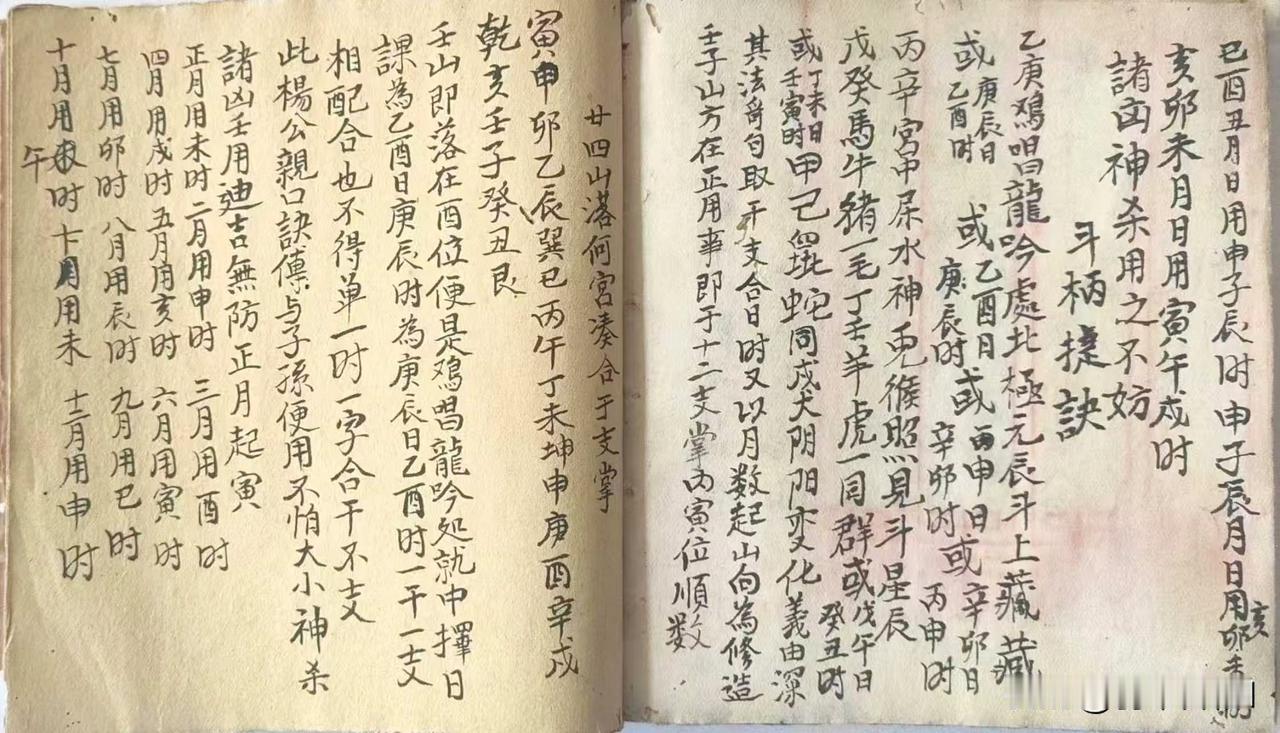 巳酉丑月日用申子辰时申子辰月日用亥卯未时
亥卯未月日用寅午戌时
諸凶神杀用之不妨
斗柄捷訣
乙庚鸡唱龍吟處北極元辰斗上藏藏
或庚辰日乙酉时或乙酉日庚辰时或丙申日辛卯时或辛卯日丙申时
丙辛宫中屎水神兎猴照見斗星辰
戊癸馬牛豬一毛丁壬羊虎一同群或戊午日癸丑时
或丁未日壬寅时甲己蛇同戍犬阴阳变化義由深
其法哥句取干支合日时又以月数起山向為修造
壬子山方在正用事即于十二支掌内寅位順数
廿四山落何宫凑合于支掌
寅甲卯乙辰巽巳丙午丁未坤申庚酉辛戍
乾亥壬子癸丑艮
壬山即落在酉位便是鸡唱龍吟处就中擇日
課為乙酉日庚辰时為庚辰日乙酉时一干一支
相配合也不得单一时一字合干不支
此楊公親口訣傳与子孫便用不怕大小神杀
諸凶壬用迪吉無防正月起寅
正月用未时二月用申时三月用酉时
四月用戍时五月用亥时六月用寅时
七月用卯时八月用辰时九月用巳时
十月用午时十月用未十二月用申时